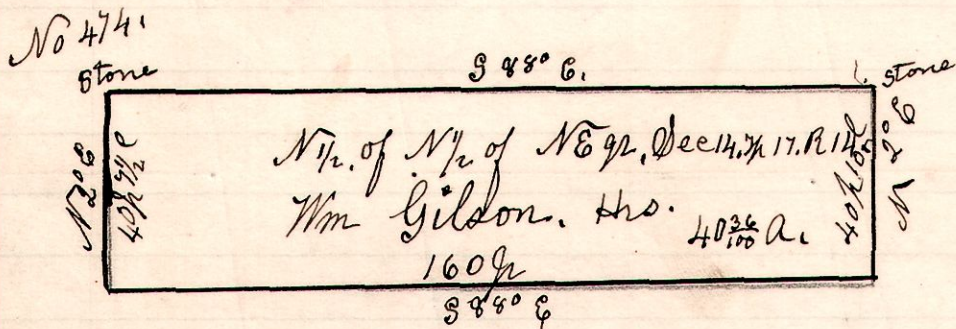 No 474.
Stone
S 88° E.
Stone
N 2° E
40p 7½ l
N ½ of N ½ of NE qr. Sec 14. Tp 17. R 14
Wm Gilson. Hrs.
40 36/100 A.
160 p
40 p 10 l
N 2° E
S 88° E